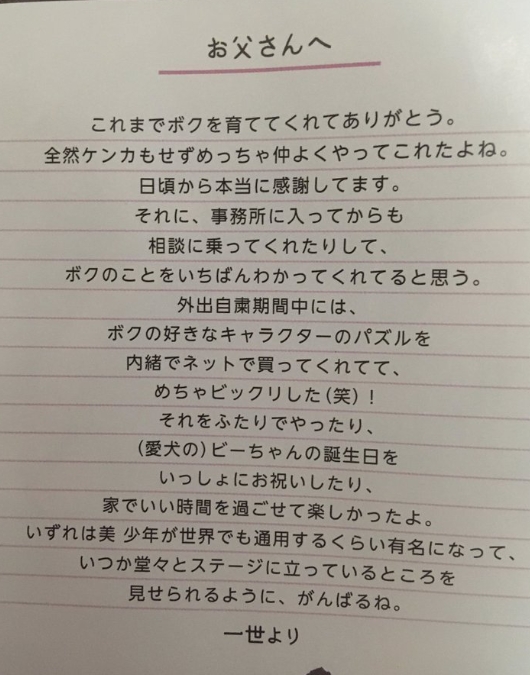 お父さんへ
これまでボクを育ててくれてありがとう。
全然ケンカもせずめっちゃ仲よくやってこれたよね。
日頃から本当に感謝してます。
それに、事務所に入ってからも
相談に乗ってくれたりして、
ボクのことをいちばんわかってくれてると思う。
外出自粛期間中には、
ボクの好きなキャラクターのパズルを
内緒でネットで買ってくれてて、
めちゃビックリした(笑)！
それをふたりでやったり、
(愛犬の)ビーちゃんの誕生日を
いっしょにお祝いしたり、
家でいい時間を過ごせて楽しかったよ。
いずれは美 少年が世界でも通用するくらい有名になって、
いつか堂々とステージに立っているところを
見せられるように、がんばるね。
一世より